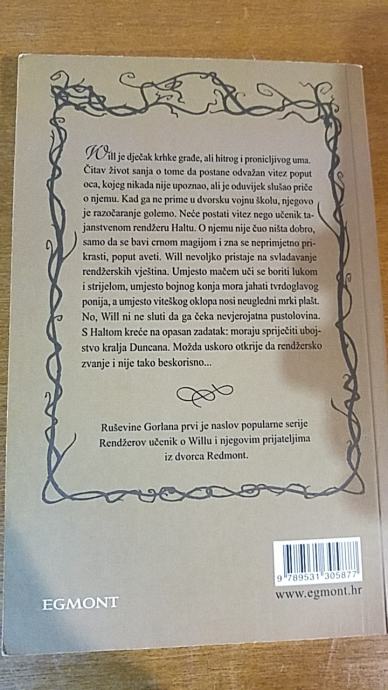 Will je dječak krhke građe, ali hitrog i pronicljivog uma.
Čitav život sanja o tome da postane odvažan vitez poput
oca, kojeg nikada nije upoznao, ali je oduvijek slušao priče
o njemu. Kad ga ne prime u dvorsku vojnu školu, njegovo
je razočaranje golemo. Neće postati vitez nego učenik ta-
janstvenom rendžeru Haltu. O njemu nije čuo ništa dobro,
samo da se bavi crnom magijom i zna se neprimjetno pri-
krasti, poput aveti. Will nevoljko pristaje na svladavanje
rendžerskih vještina. Umjesto mačem uči se boriti lukom
i strijelom, umjesto bojnog konja mora jahati tvrdoglavog
ponija, a umjesto viteškog oklopa nosi neugledni mrki plašt.
No, Will ni ne sluti da ga čeka nevjerojatna pustolovina.
S Haltom kreće na opasan zadatak: moraju spriječiti uboj-
stvo kralja Duncana. Možda uskoro otkrije da rendžersko
zvanje i nije tako beskorisno...
Ruševine Gorlana prvi je naslov popularne serije
Rendžerov učenik o Willu i njegovim prijateljima
iz dvorca Redmont.
9 789531 305877
www.egmont.hr
EGMONT